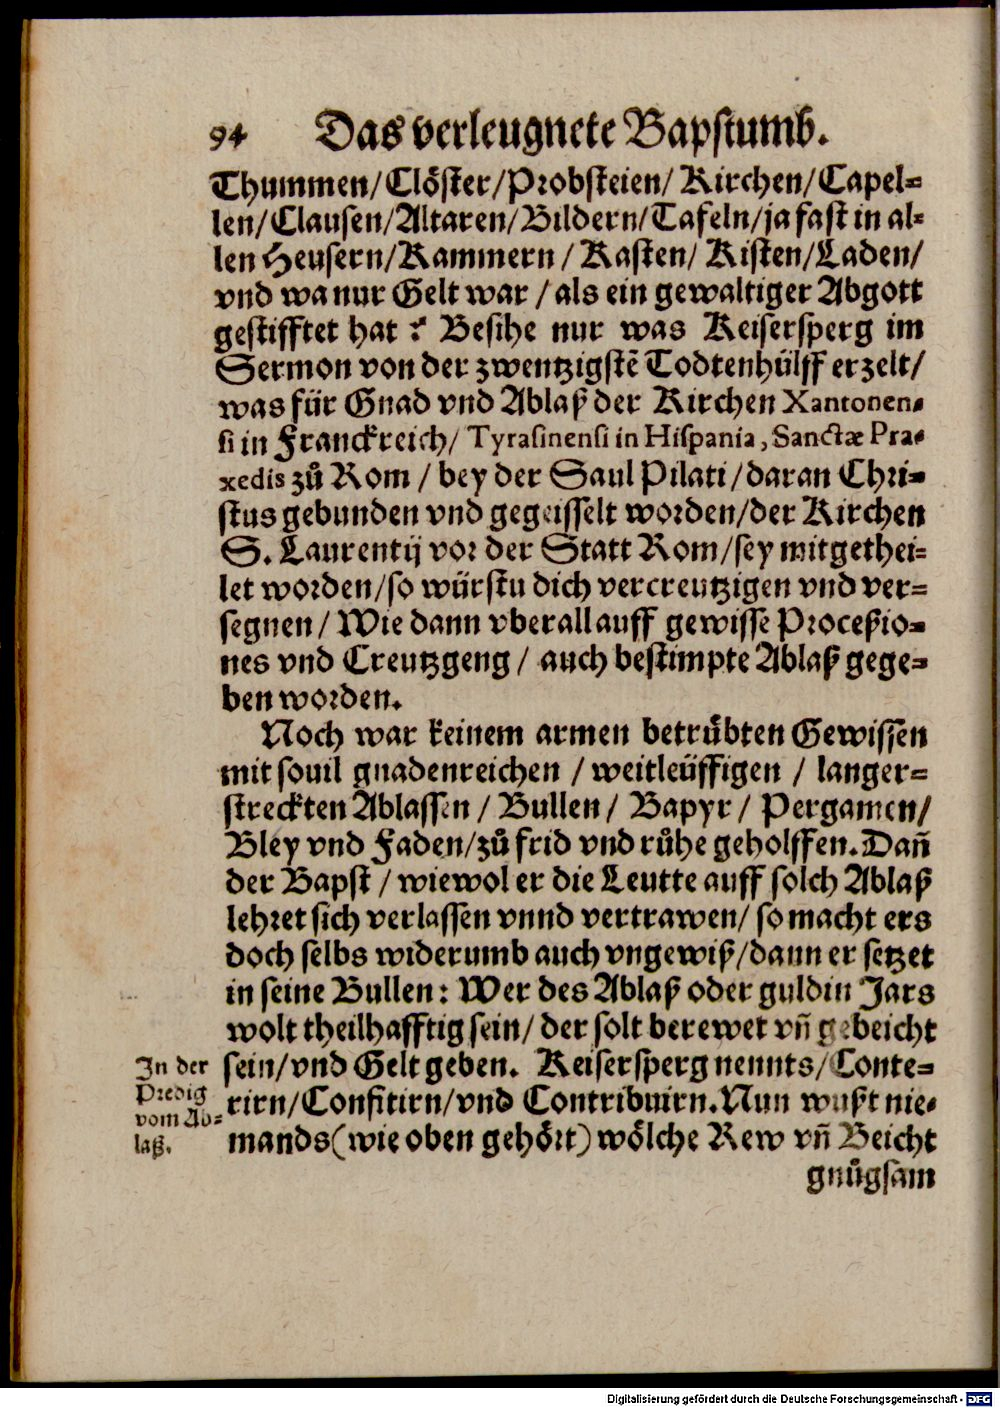 94 Das verleugnete Bapstumb.
Thummen/Clöster/Probsteien/ Kirchen/Capel=
len/Clausen/Altaren/Bildern/Tafeln/ja fast in al=
len Heusern/Kammern / Kasten/ Kisten/Laden/
vnd wa nur Gelt war / als ein gewaltiger Abgott
gestifftet hat? Besihe nur was Keisersperg im
Sermon von der zwentzigstē Todtenhülff erzelt/
was für Gnad vnd Ablaß der Kirchen Xantonen=
si in Franckreich/ Tyrasinensi in Hispania, Sanctæ Pra=
xedis zů Rom / bey der Saul Pilati / daran Chri=
stus gebunden vnd gegeisselt worden/der Kirchen
S. Laurentij vor der Statt Rom/sey mitgethei=
let worden/so würstu dich vercreutzigen vnd ver=
segnen / Wie dann vberall auff gewisse Proceßio=
nes vnd Creutzgeng / auch bestimpte Ablaß gege=
ben worden.
Noch war keinem armen betrůbten Gewissen
mit souil gnadenreichen / weitleüffigen / langer=
streckten Ablassen / Bullen / Bapyr / Pergamen/
Bley vnd Faden/zů frid vnd růhe geholffen. Dañ
der Bapst / wiewol er die Leutte auff solch Ablaß
lehret sich verlassen vnnd vertrawen/ so macht ers
doch selbs widerumb auch vngewiß/dann er setzet
in seine Bullen: Wer des Ablaß oder guldin Jars
wolt theilhafftig sein/ der solt berewet vñ gebeicht
sein/vnd Gelt geben. Keisersperg nennts/Conte=
rirn/Confitirn/vnd Contribuirn. Nun wußt nie=
mands (wie oben gehört) wölche Rew vñ Beicht
gnůgsam
In der
Predig
vom Ab=
laß.
Digitalisierung gefördert durch die Deutsche Forschungsgemeinschaft - DFG